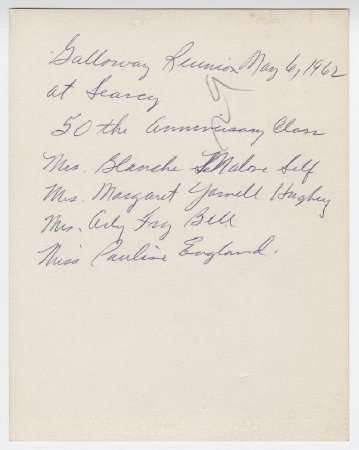 Galloway Reunion May 6, 1962
at Searcy
50 the Anniversary Class
Mrs. Blanche Malone Self
Mrs. Margaret Yarnell Hughey
Mrs. Arly Fry Bell
Miss Pauline England.